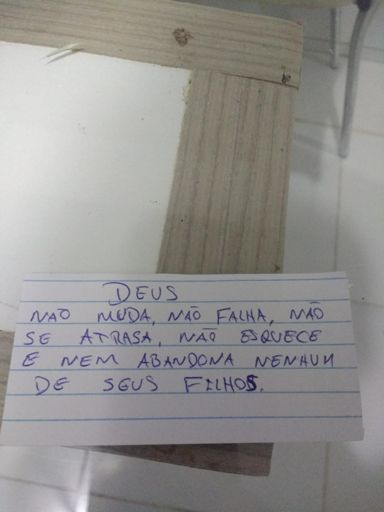 DEUS
NÃO MUDA, NÃO FALHA, NÃO
SE ATRASA, NÃO ESQUECE
E NEM ABANDONA NENHUM
DE SEUS FILHOS.